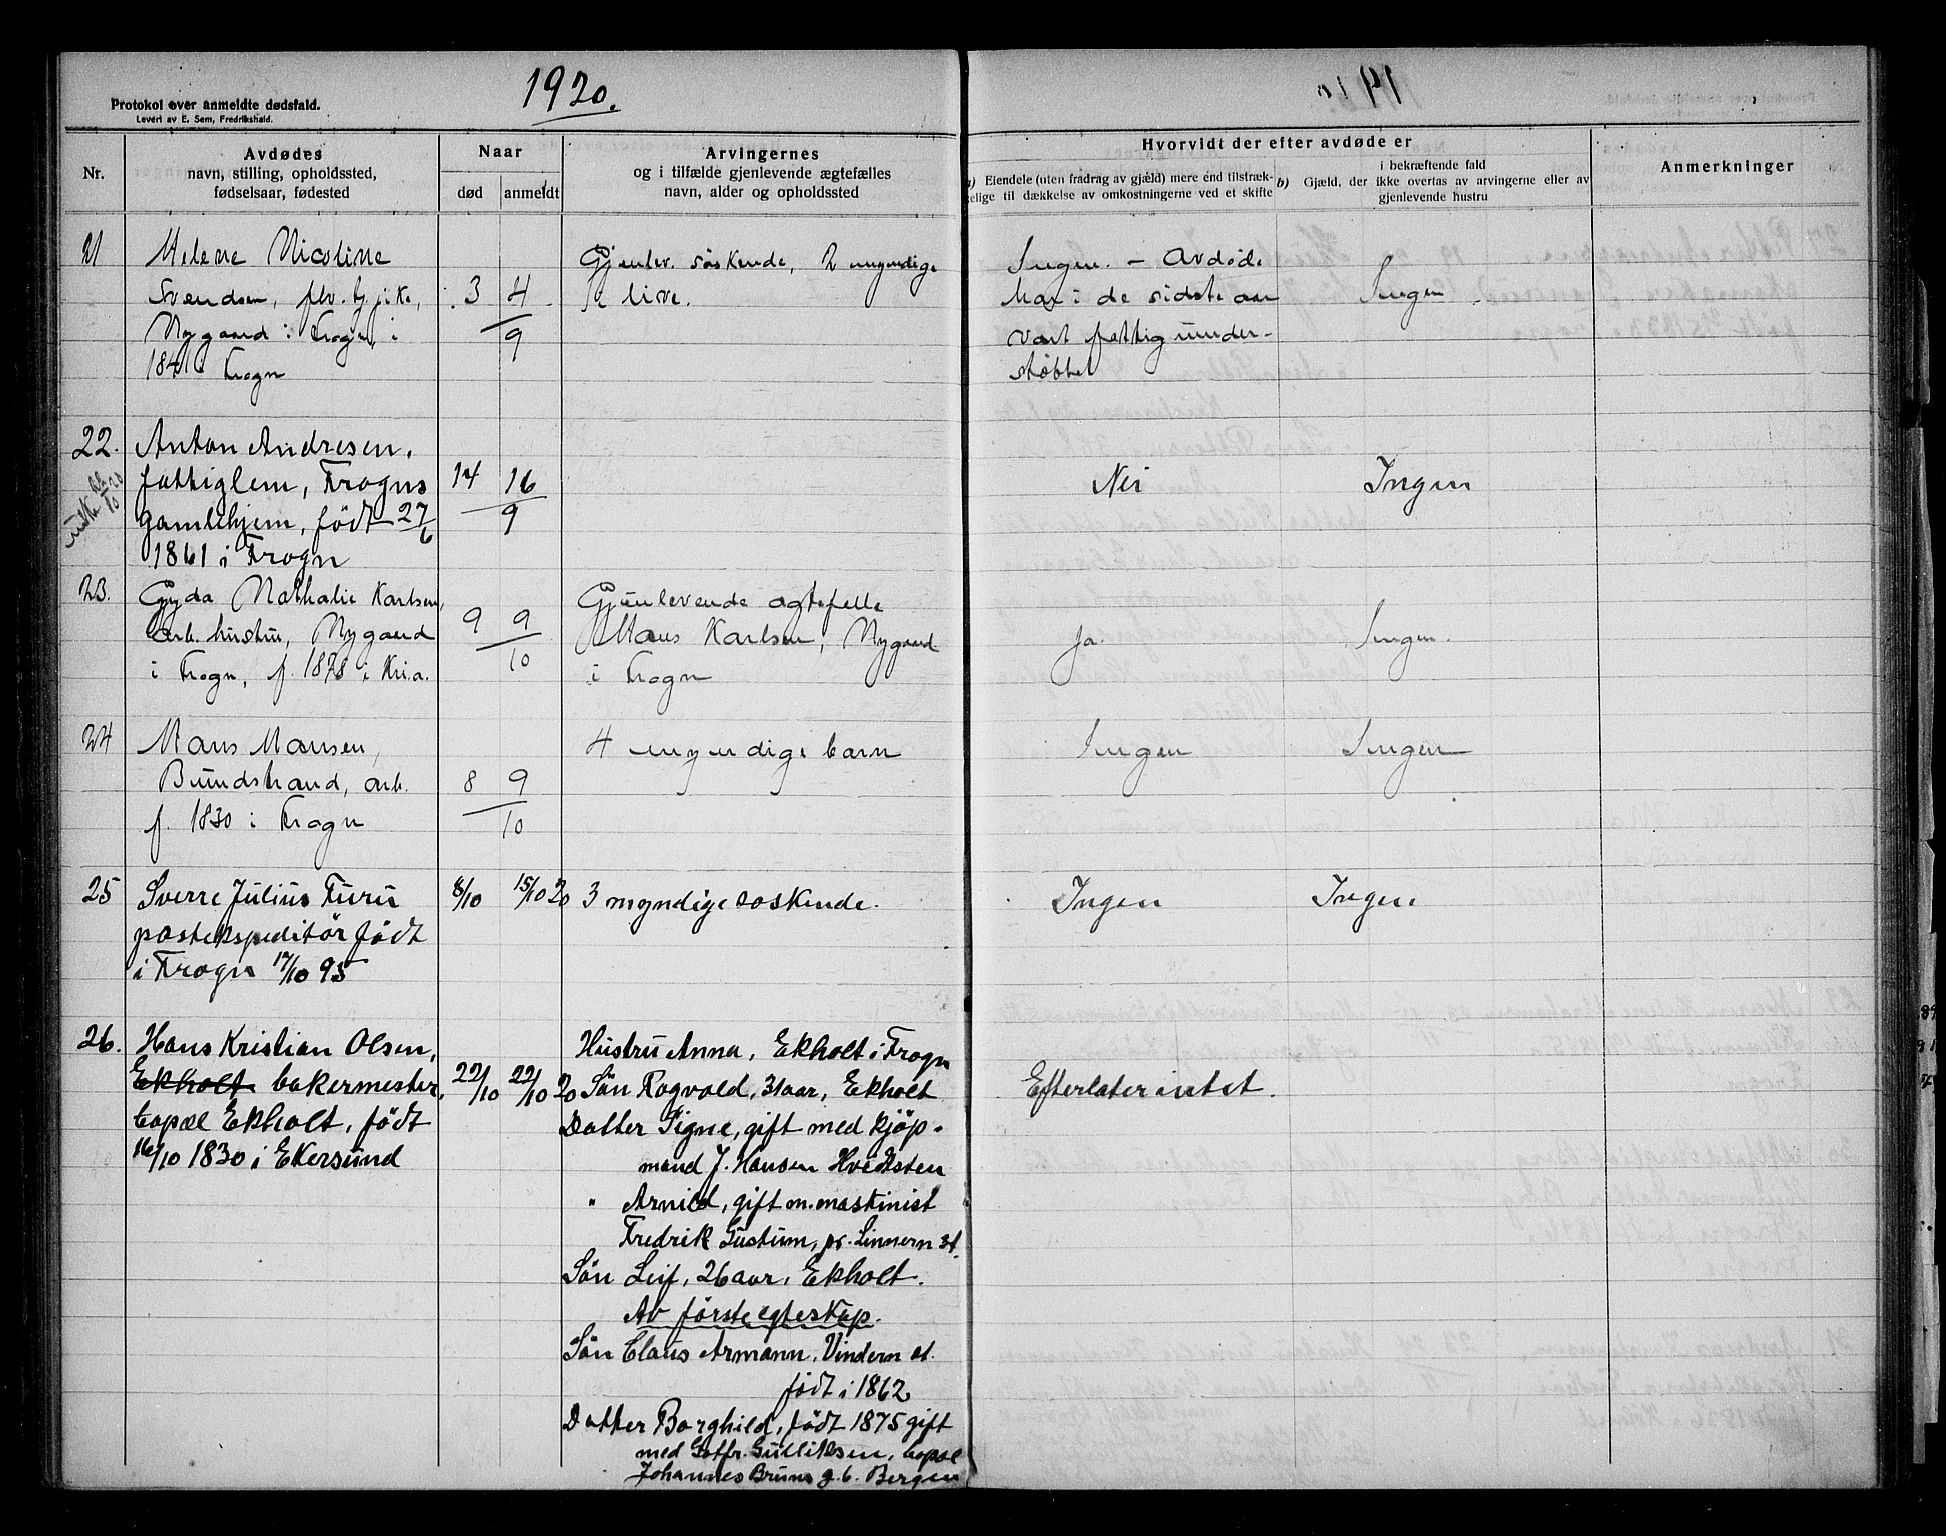 1920.
Protokol over anmeldte dødsfald.
Levert av E. Sem, Fredrikshald.
Nr.
Avdødes
navn, stilling, opholdssted,
fødselsaar, fødested
Naar
død
anmeldt
Arvingernes
og i tilfælde gjenlevende ægtefælles
navn, alder og opholdssted
Hvorvidt der efter avdøde er
a) Eiendele (uten fradrag av gjæld) mere end tilstræk-
kelige til dækkelse av omkostningerne ved et skifte
b) Gjæld, der i bekræftende fald
ikke overtas av arvingerne eller av
gjenlevende hustru
Anmerkninger
21
Helene Nicoline
Svendsen, pike,
Nygaard i Frogn, i
Frogn
3 4/9
Gjenlev. søskende, 2 umyndige
Ingen. – Avdøde
har i de sidste aar
vært fattigunder-
støttet
Ingen
22.
Anton Andresen,
fattiglem, Frogns
gamlehjem, født 27/6
1861 i Frogn
14 16/9
Nei
Ingen
23.
Gyda Nathalie Karlsen,
arb. hustru, Nygaard
i Frogn, f. 1878 i Kr.a.
9 9/10
Gjenlevende egtefelle
Hans Karlsen, Nygaard
i Frogn
Ja.
Ingen.
24
Hans Hansen,
Bundstrand, arb.
f. 1830 i Frogn
8 9/10
4 myndige barn
Ingen
Ingen
25
Sverre Julius Furu
postekspeditör födt
i Frogn 17/10 95
8/10 15/10 20
3 myndige søskende.
Ingen
Ingen
26.
Hans Kristian Olsen,
Ekholt bakermester,
bopæl Ekholt, födt
16/10 1830 i Ekersund
22/10 22/10 20
Hustru Anna, Ekholt i Frogn
Sön Ragvald, 31 aar, Ekholt
Datter Signe, gift med kjöp-
mand J. Hansen Hvitsten
" Arnild, gift m. maskinist
Fredrik Gustum, pr. Linnern st.
Sön Leif, 26 aar, Ekholt.
Av förste egteskap.
Sön Claus Armann, Vindern st.
födt i 1862
Datter Borghild, födt 1875 gift
med Gotfr. Gulliksen, bopæl
Johannes Bruns g. 6. Bergen
Efterlater intet.